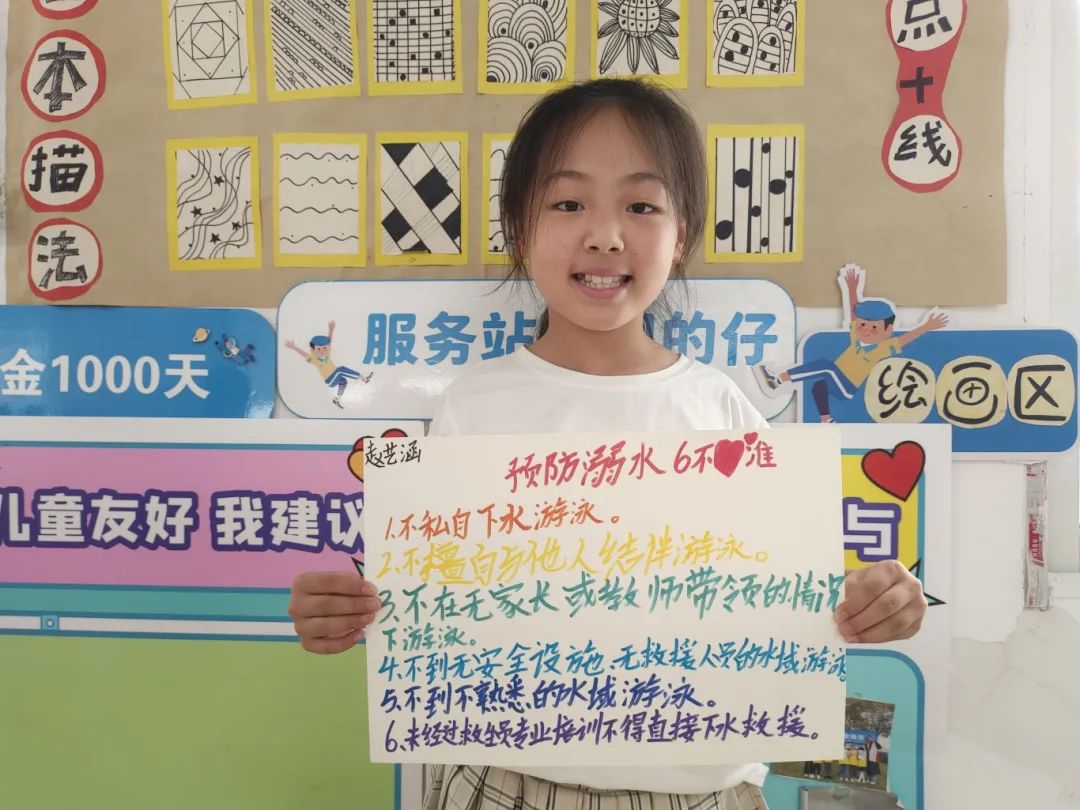 本
描
法
点
+
线
金1000天
服务站
的仔
绘画区
儿童友好 我建议
与
赵艺涵
预防溺水 6不准
1.不私自下水游泳。
2.不擅自与他人结伴游泳。
3.不在无家长或教师带领的情况
下游泳。
4.不到无安全设施、无救援人员的水域游泳。
5.不到不熟悉的水域游泳。
6、未经过救生员专业培训不得直接下水救援。